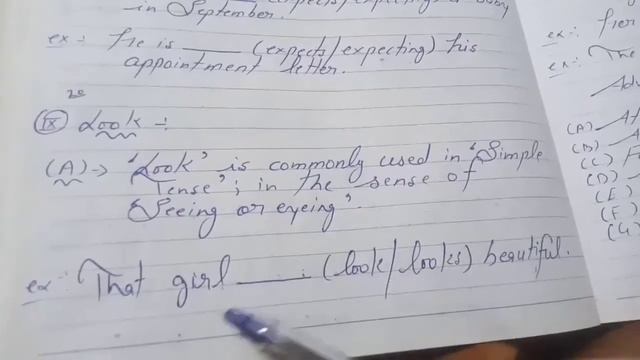 in September.
ex:- He is ____ (expects/expecting) his
appointment letter.
(IX) Look :-
(A) → 'Look' is commonly used in 'Simple
Tense'; in the sense of
Seeing or eyeing'.
ex:- That girl ____. (look/looks) beautiful.
ex:-
ex:- The
(A)
(B)
(C)
(D)
(E)
(F)
(G)